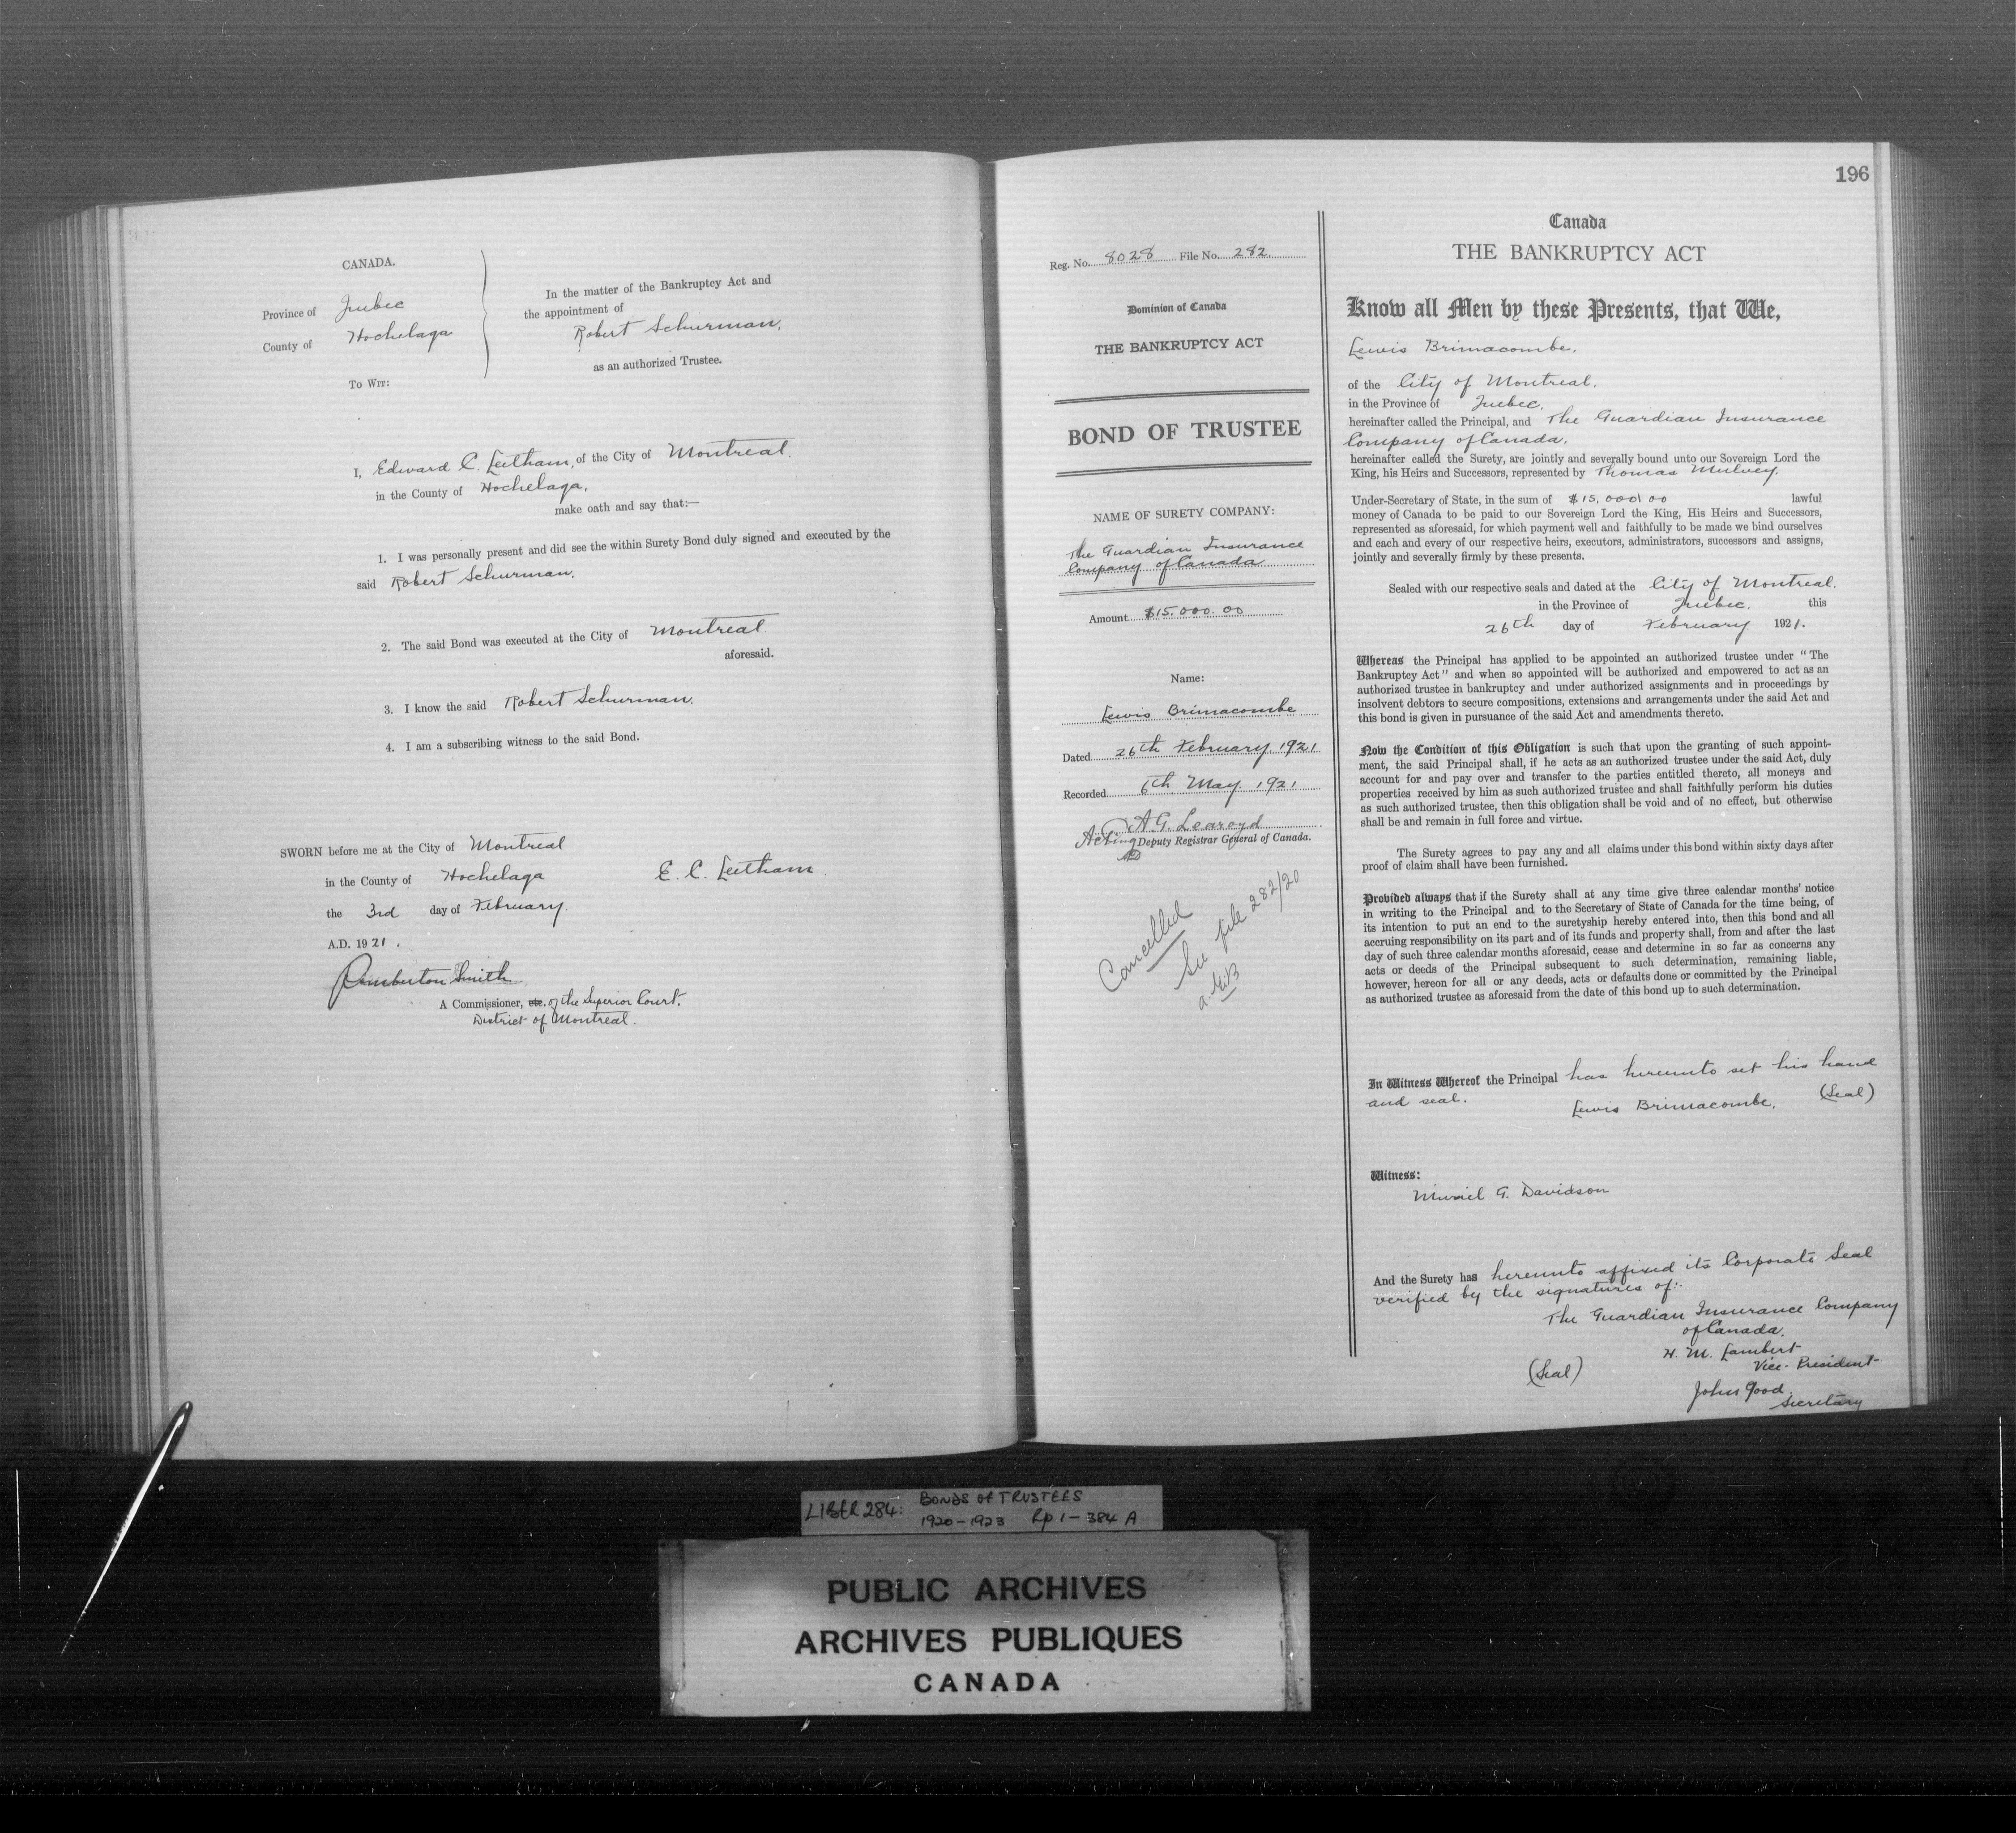 CANADA.
Province of Quebec
County of Hochelaga
To Wit:
In the matter of the Bankruptcy Act and
the appointment of
Robert Schurman,
as an authorized Trustee.
I, Edward C. Leetham, of the City of Montreal.
in the County of Hochelaga,
make oath and say that:—
1. I was personally present and did see the within Surety Bond duly signed and executed by the
said Robert Schurman.
2. The said Bond was executed at the City of Montreal.
aforesaid.
3. I know the said Robert Schurman.
4. I am a subscribing witness to the said Bond.
SWORN before me at the City of Montreal
in the County of Hochelaga
the 3rd day of February.
A.D. 1921.
E. C. Leetham.
Pemberton Smith
A Commissioner, etc. of the Superior Court.
District of Montreal.
196
Reg. No. 8028 File No. 282.
Dominion of Canada
THE BANKRUPTCY ACT
BOND OF TRUSTEE
NAME OF SURETY COMPANY:
The Guardian Insurance
Company of Canada
Amount $15.000.00
Name:
Lewis Brimacombe
Dated 26th February, 1921
Recorded 6th May 1921
A.G. Learoyd
Acting Deputy Registrar General of Canada.
Cancelled
See file 282/20
Canada
THE BANKRUPTCY ACT
Know all Men by these Presents, that We,
Lewis Brimacombe,
of the City of Montreal,
in the Province of Quebec,
hereinafter called the Principal, and The Guardian Insurance
Company of Canada,
hereinafter called the Surety, are jointly and severally bound unto our Sovereign Lord the
King, his Heirs and Successors, represented by Thomas Mulvey,
Under-Secretary of State, in the sum of $15,000.00 lawful
money of Canada to be paid to our Sovereign Lord the King, His Heirs and Successors,
represented as aforesaid, for which payment well and faithfully to be made we bind ourselves
and each and every of our respective heirs, executors, administrators, successors and assigns,
jointly and severally firmly by these presents.
Sealed with our respective seals and dated at the City of Montreal.
in the Province of Quebec, this
26th day of February 1921.
Whereas the Principal has applied to be appointed an authorized trustee under "The
Bankruptcy Act" and when so appointed will be authorized and empowered to act as an
authorized trustee in bankruptcy and under authorized assignments and in proceedings by
insolvent debtors to secure compositions, extensions and arrangements under the said Act and
this bond is given in pursuance of the said Act and amendments thereto.
Now the Condition of this Obligation is such that upon the granting of such appoint-
ment, the said Principal shall, if he acts as an authorized trustee under the said Act, duly
account for and pay over and transfer to the parties entitled thereto, all moneys and
properties received by him as such authorized trustee and shall faithfully perform his duties
as such authorized trustee, then this obligation shall be void and of no effect, but otherwise
shall be and remain in full force and virtue.
The Surety agrees to pay any and all claims under this bond within sixty days after
proof of claim shall have been furnished.
Provided always that if the Surety shall at any time give three calendar months' notice
in writing to the Principal and to the Secretary of State of Canada for the time being, of
its intention to put an end to the suretyship hereby entered into, then this bond and all
accruing responsibility on its part and of its funds and property shall, from and after the last
day of such three calendar months aforesaid, cease and determine in so far as concerns any
acts or deeds of the Principal subsequent to such determination, remaining liable,
however, hereon for all or any deeds, acts or defaults done or committed by the Principal
as authorized trustee as aforesaid from the date of this bond up to such determination.
In Witness Whereof the Principal has hereunto set his hand
and seal.
Lewis Brimacombe. (Seal)
Witness:
Muriel G. Davidson
And the Surety has hereunto affixed its Corporate Seal
verified by the signatures of:-
The Guardian Insurance Company
of Canada.
H. M. Lambert
Vice-President
(Seal)
John Good.
Secretary
LIBER 284: BONDS OF TRUSTEES
1920-1923 Rp 1-384 A
PUBLIC ARCHIVES
ARCHIVES PUBLIQUES
CANADA